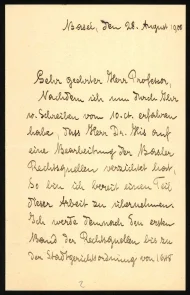 Basel, den 28. August 1908
Sehr geehrter Herr Professor,
Nachdem ich nun durch Ihr
w. Schreiben vom 10. ct. erfahren
habe, dass Herr Dr. His auf
eine Bearbeitung der Basler
Rechtsquellen verzichtet hat,
so bin ich bereit einen Teil
dieser Arbeit zu übernehmen.
Ich werde demnach den ersten
Band der Rechtsquellen bis zu
der Stadtgerichtsordnung von